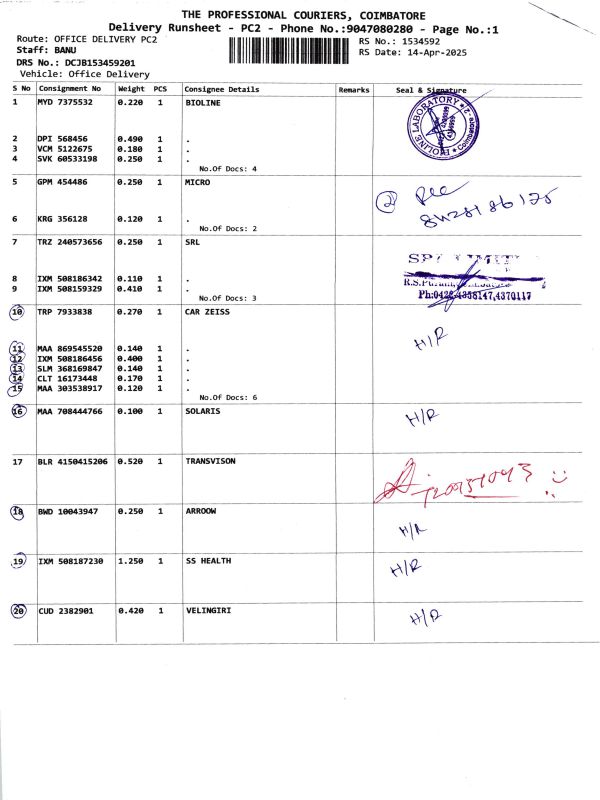 THE PROFESSIONAL COURIERS, COIMBATORE
Delivery Runsheet - PC2 - Phone No.:9047080280 - Page No.:1
Route: OFFICE DELIVERY PC2
RS No.: 1534592
Staff: BANU
RS Date: 14-Apr-2025
DRS No.: DCJB153459201
Vehicle: Office Delivery
S No Consignment No Weight PCS Consignee Details Remarks Seal & Signature
1 MYD 7375532 0.220 1 BIOLINE
BIOLINE LABORATORY
Coimbatore - 2
2 DPI 568456 0.490 1 .
3 VCM 5122675 0.180 1 .
4 SVK 60533198 0.250 1 .
No.Of Docs: 4
5 GPM 454486 0.250 1 MICRO
2
6 KRG 356128 0.120 1 .
No.Of Docs: 2
7 TRZ 240573656 0.250 1 SRL
8 IXM 508186342 0.110 1 .
9 IXM 508159329 0.410 1 .
No.Of Docs: 3
Ph:0422-4358147,4370117
10 TRP 7933838 0.270 1 CAR ZEISS
H/R
11 MAA 869545520 0.140 1 .
12 IXM 508186456 0.400 1 .
13 SLM 368169847 0.140 1 .
14 CLT 16173448 0.170 1 .
15 MAA 303538917 0.120 1 .
No.Of Docs: 6
16 MAA 708444766 0.100 1 SOLARIS
H/R
17 BLR 4150415206 0.520 1 TRANSVISON
18 BWD 10043947 0.250 1 ARROOW
H/R
19 IXM 508187230 1.250 1 SS HEALTH
H/R
20 CUD 2382901 0.420 1 VELINGIRI
H/R